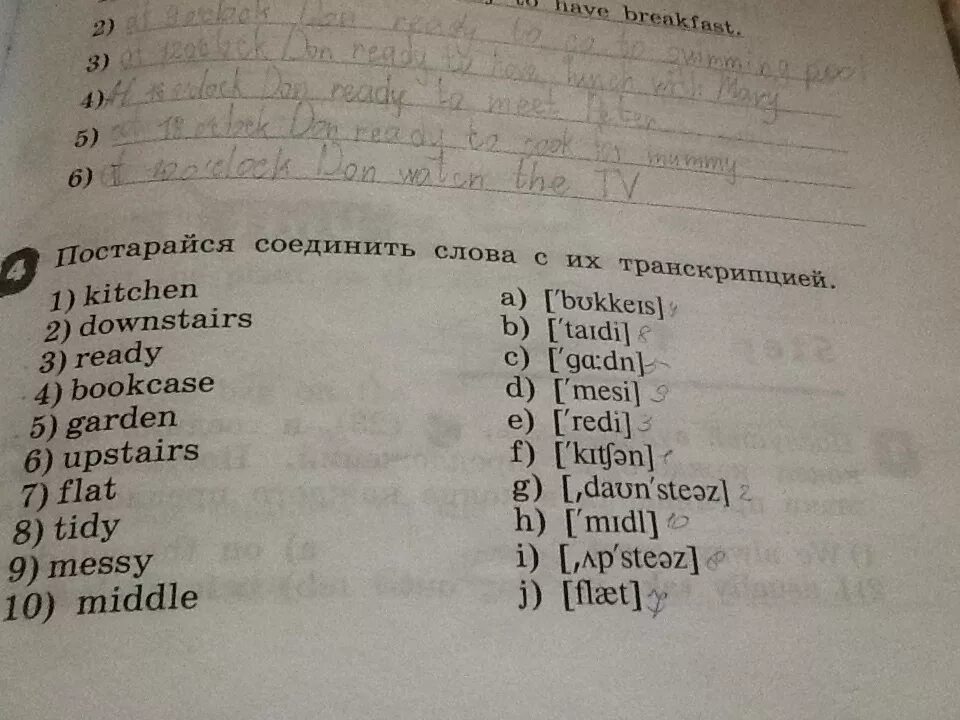 to have breakfast.
2) at o'clock Don ready to go to swimming pool
3) at 12 o'clock Don ready to have lunch with Mary
4) At 15 o'clock Don ready to meet Peter
5) at 18 o'clock Don ready to cook his mummy
6) at 20 o'clock Don watch the TV
4 Постарайся соединить слова с их транскрипцией.
1) kitchen a) [ˈbʊkkeɪs] 4
2) downstairs b) [ˈtaɪdi] 8
3) ready c) [ˈgɑːdn] 5
4) bookcase d) [ˈmesi] 9
5) garden e) [ˈredi] 3
6) upstairs f) [ˈkɪtʃən] 1
7) flat g) [ˌdaʊnˈsteəz] 2
8) tidy h) [ˈmɪdl] 10
9) messy i) [ˌʌpˈsteəz] 6
10) middle j) [flæt] 7